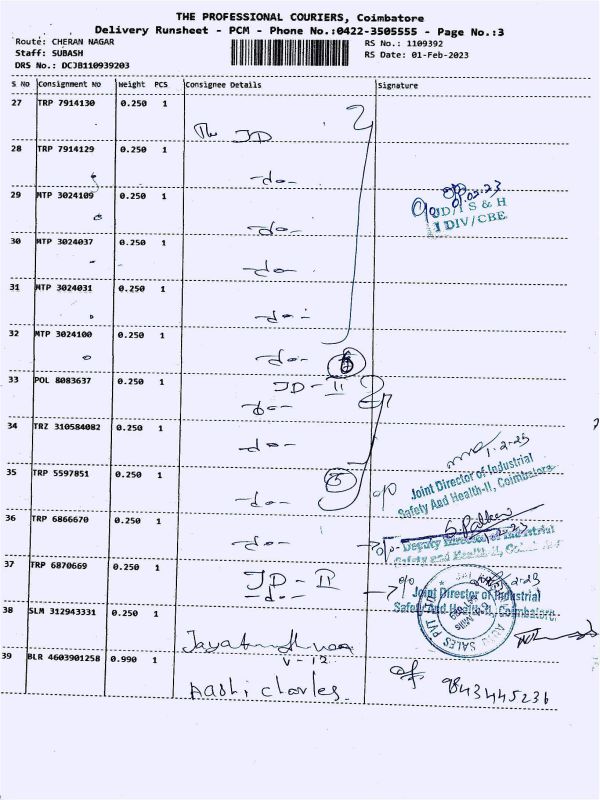 THE PROFESSIONAL COURIERS, Coimbatore
Delivery Runsheet - PCM - Phone No.:0422-3505555 - Page No.:3
Route: CHERAN NAGAR
RS No.: 1109392
Staff: SUBASH
RS Date: 01-Feb-2023
DRS No.: DCJB110939203
S No Consignment No Weight PCS Consignee Details Signature
27 TRP 7914130 0.250 1
The JD
28 TRP 7914129 0.250 1
-do-
29 MTP 3024109 0.250 1
-do-
S & H
I DIV/CBE
30 MTP 3024037 0.250 1
-do-
31 MTP 3024031 0.250 1
-do-
32 MTP 3024100 0.250 1
-do-
33 POL 8083637 0.250 1
JD - II
-do-
34 TRZ 310584082 0.250 1
-do-
1-2-23
Joint Director of Industrial
Safety And Health-II, Coimbatore
35 TRP 5597851 0.250 1
-do-
5
36 TRP 6866670 0.250 1
-do-
Deputy Director of Industrial
Safety and Health-II, Coimbatore
37 TRP 6870669 0.250 1
JD - II
-do-
Joint Director of Industrial
Safety And Health-II, Coimbatore
38 SLM 312943331 0.250 1
SALES PVT
Mills
39 BLR 4603901258 0.990 1
V-12
charles
9843445236